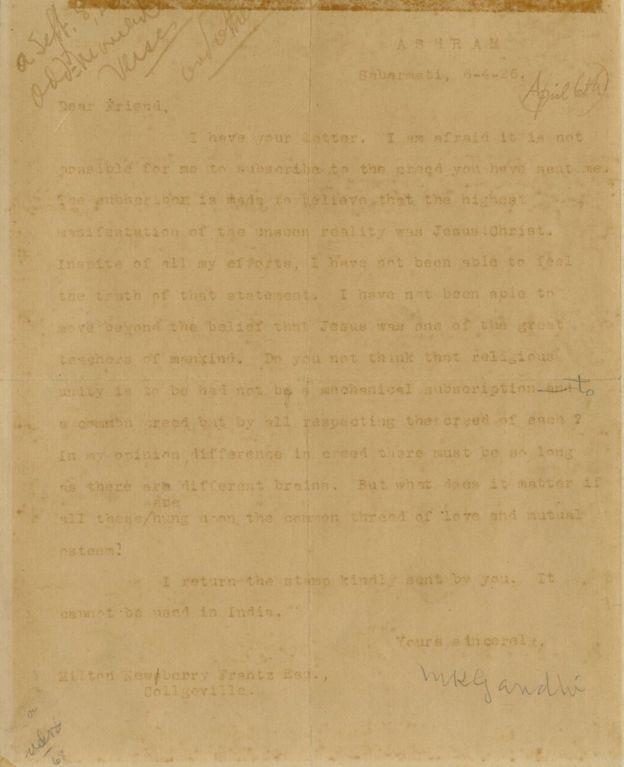 ASHRAM
Sabarmati, 6-4-26.
April 6th
Dear Friend,
I have your letter. I am afraid it is not
possible for me to subscribe to the creed you have sent me.
The subscriber is made to believe that the highest
manifestation of the unseen reality was Jesus Christ.
Inspite of all my efforts, I have not been able to feel
the truth of that statement. I have not been able to
move beyond the belief that Jesus was one of the great
teachers of mankind. Do you not think that religious
unity is to be had not by a mechanical subscription and to
a common creed but by all respecting the creed of each ?
In my opinion difference in creed there must be so long
as there are different brains. But what does it matter if
all these/hung upon the common thread of love and mutual
are
esteem!
I return the stamp kindly sent by you. It
cannot be used in India.
Yours sincerely,
MKGandhi
Milton New/berry Frantz Esq.,
Collgeville.